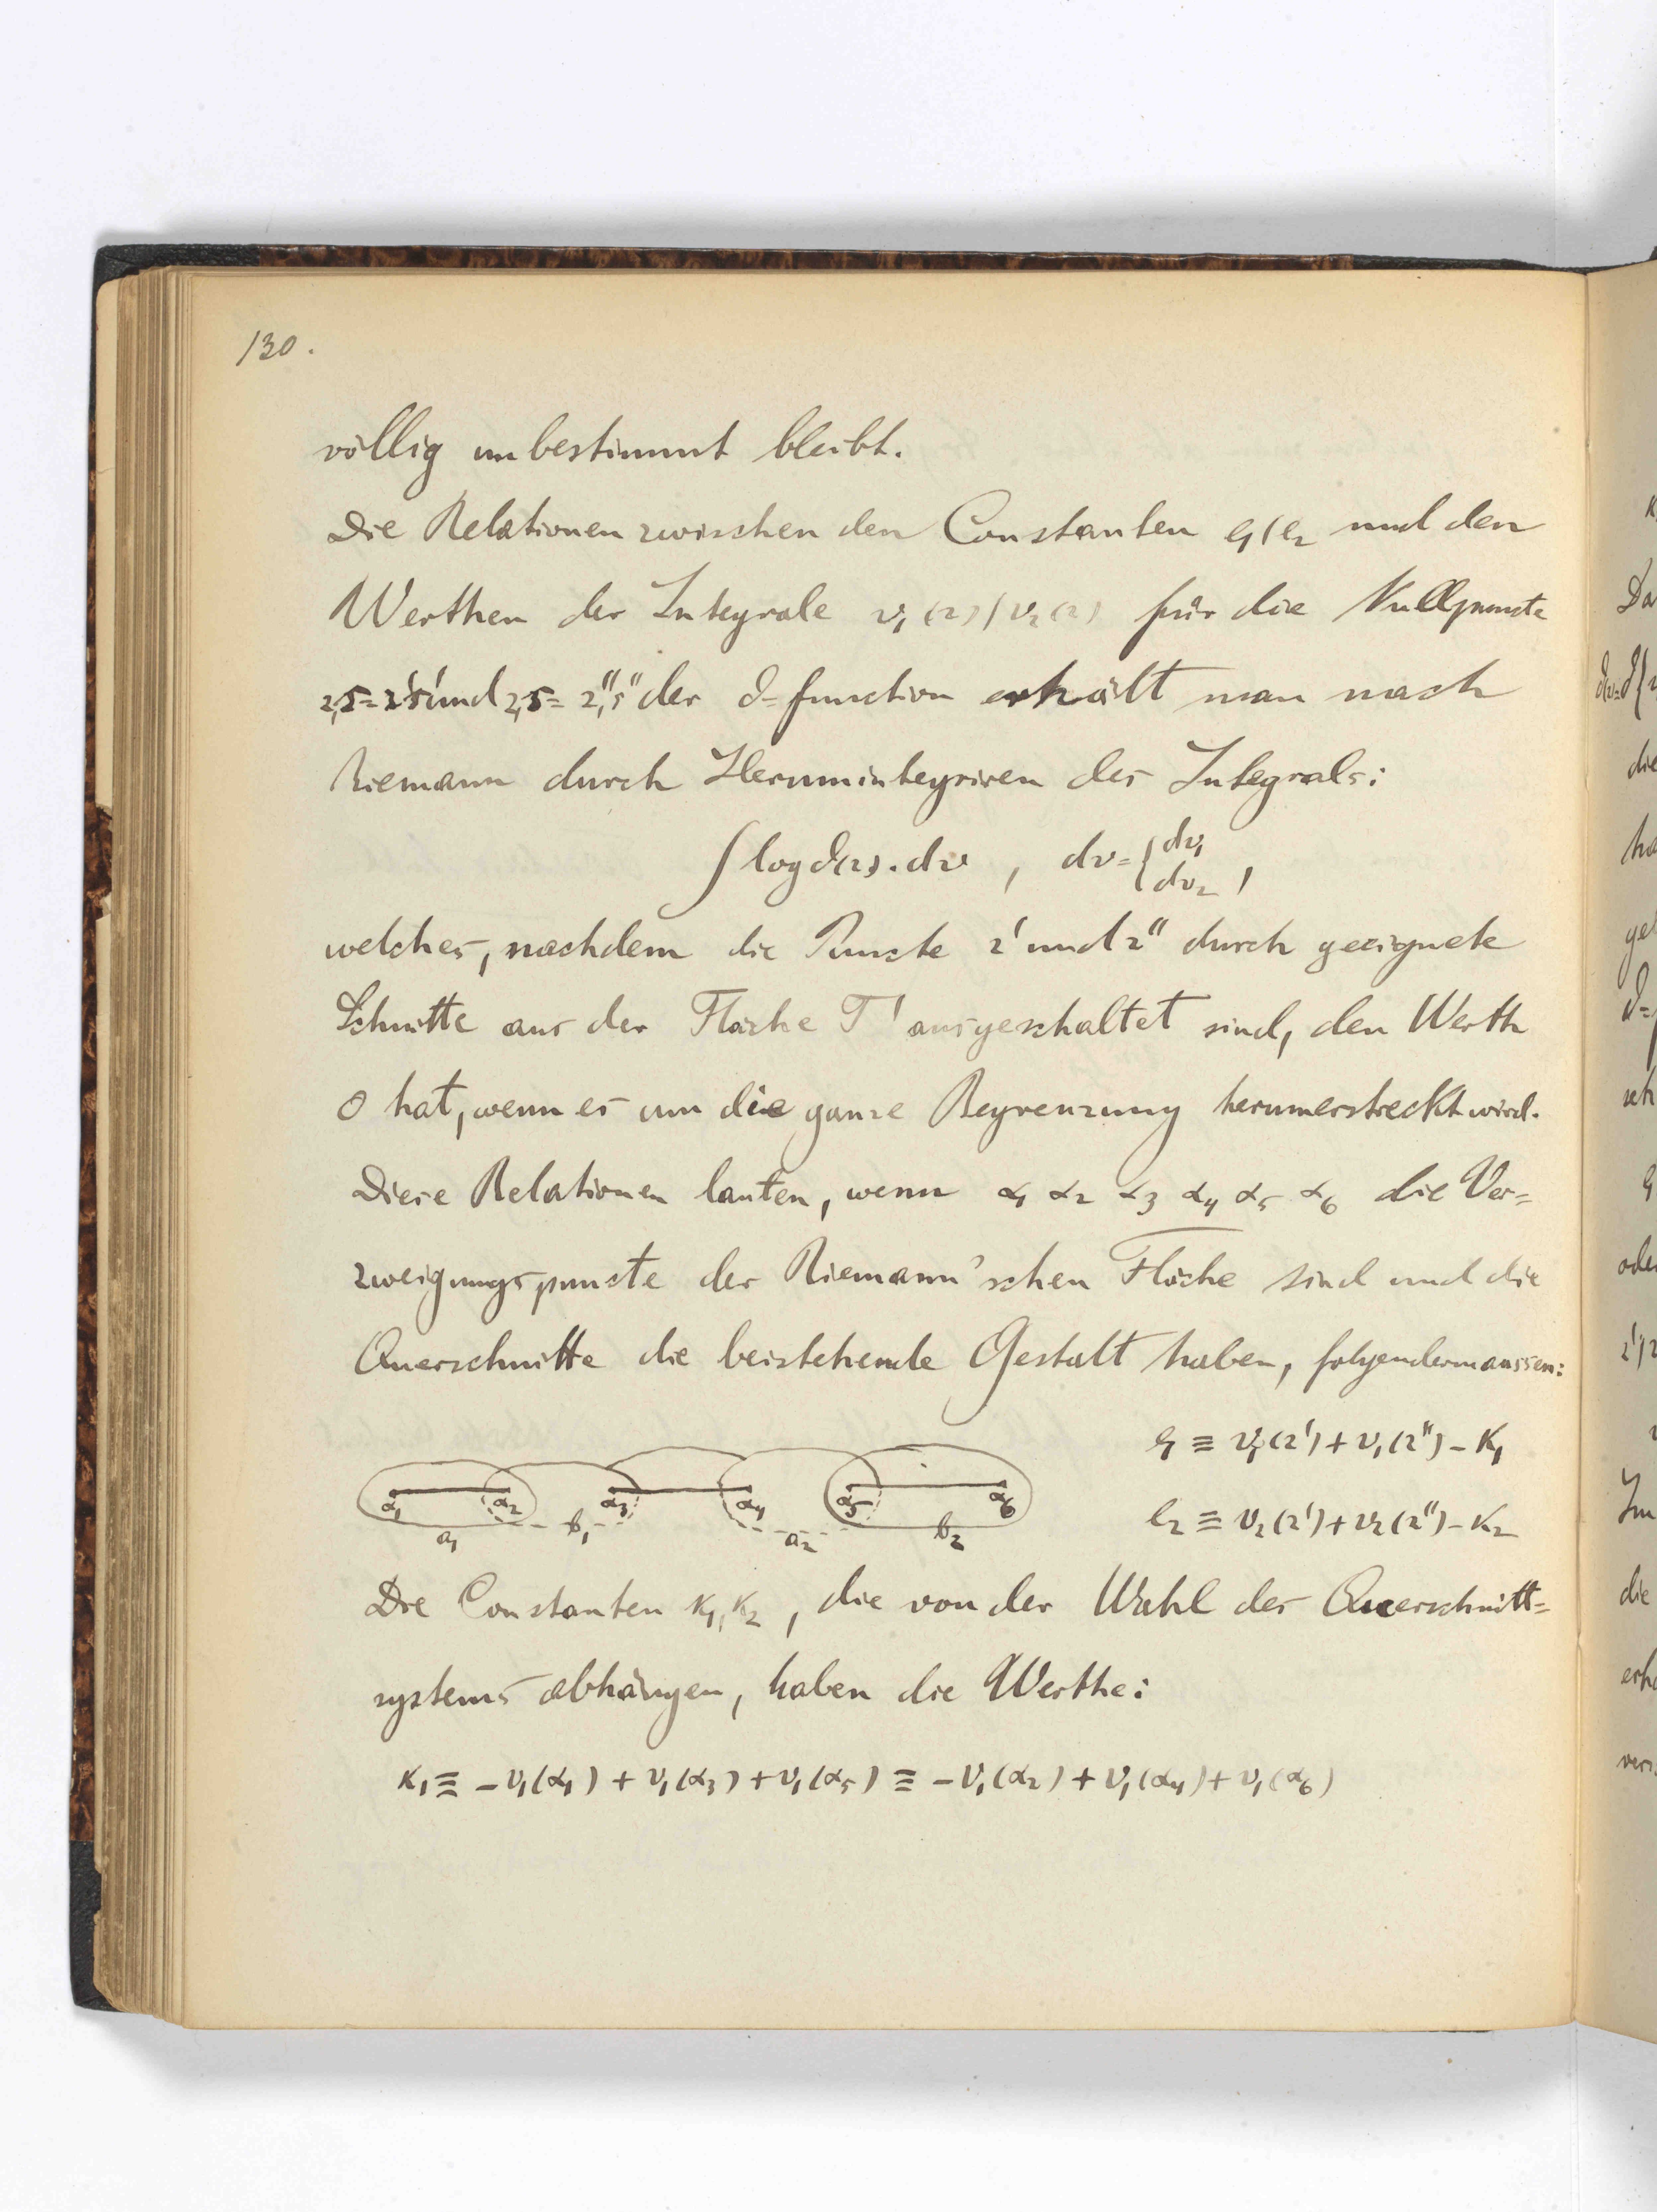 130.
völlig unbestimmt bleibt.
Die Relationen zwischen den Constanten e₁, e₂ und den
Werthen der Integrale v₁(z), v₂(z) für die Nullpuncte
z,s = z',s' und z,s = z'',s'' der ϑ=function erhält man nach
Riemann durch Herumintegriren des Integrals:
∫ log ϑ(z). dv , dv = { dv₁ dv₂ ,
welches, nachdem die Puncte z' und z'' durch geeignete
Schnitte aus der Fläche T' ausgeschaltet sind, den Werth
0 hat, wenn es um die ganze Begrenzung herumerstreckt wird.
Diese Relationen lauten, wenn α₁ α₂ α₃ α₄ α₅ α₆ die Ver=
zweigungspuncte der Riemann'schen Fläche sind und die
Querschnitte die beistehende Gestalt haben, folgendermaassen:
e₁ ≡ v₁(z') + v₁(z'') – K₁
α₁ α₂ α₃ α₄ α₅ α₆
a₁ b₁ a₂ b₂
e₂ ≡ v₂(z') + v₂(z'') – K₂
Die Constanten K₁, K₂, die von der Wahl des Querschnitt=
systems abhängen, haben die Werthe:
K₁ ≡ – v₁(α₁) + v₁(α₃) + v₁(α₅) ≡ – v₁(α₂) + v₁(α₄) + v₁(α₆)